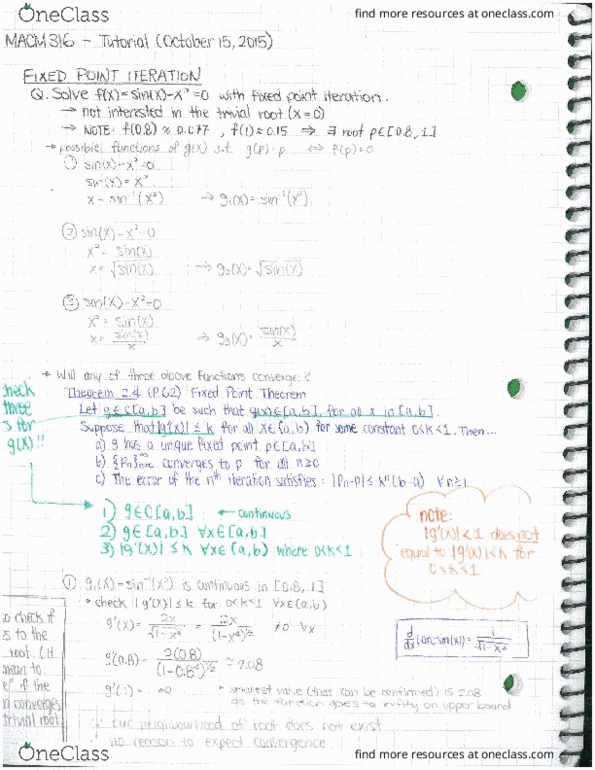 OneClass
find more resources at oneclass.com
MACM 316 - Tutorial (October 15, 2015)
FIXED POINT ITERATION
Q. Solve f(x)=sin(x)-x²=0 with fixed point iteration.
→ not interested in the trivial root (x=0)
→ NOTE: f(0.8) ≈ 0.077, f(1) ≈ 0.15 ⇒ ∃ root p∈[0.8,1]
→ possible functions of g(x) s.t. g(p)=p ⇔ f(p)=0
① sin(x)-x²=0
sin(x)=x²
x=sin⁻¹(x²) → g₁(x)=sin⁻¹(x²)
② sin(x)-x²=0
x²=sin(x)
x=√sin(x) → g₂(x)=√sin(x)
③ sin(x)-x²=0
x²=sin(x)
x=sin(x)/x → g₃(x)=sin(x)/x
* Will any of these above functions converge?
Theorem 2.4 (P.62) Fixed Point Theorem
Let g∈C[a,b] be such that g(x)∈[a,b], for all x in [a,b].
Suppose that |g'(x)| ≤ k for all x∈(a,b) for some constant 0<k<1. Then...
a) g has a unique fixed point p∈[a,b]
b) {Pn} converges to p for all n≥0
c) The error of the nth iteration satisfies: |Pn-P| ≤ kⁿ(b-a) ∀n≥1
check
three
s for
g(x)!!
1) g∈C[a,b] ← continuous
2) g∈[a,b] ∀x∈[a,b]
3) |g'(x)| ≤ k ∀x∈(a,b) where 0<k<1
note:
|g'(x)|<1 does not
equal to |g'(x)|<k for
0<k<1
① g₁(x)=sin⁻¹(x²) is continuous in [0.8,1]
* check |g'(x)| ≤ k for 0<k<1 ∀x∈(a,b)
g'(x)= 2x/√(1-x⁴) = 2x/(1-x⁴)^½ ≠0 ∀x
d/dx (arcsin(x)) = 1/√(1-x²)
g'(0.8)= 2(0.8)/(1-0.8⁴)^½ ≈ 2.08
g'(1)= ∞ * smallest value (that can be confirmed) is 2.08
as the function goes to infinity on upper bound
∴ our neighbourhood of root does not exist
∴ no reason to expect convergence
o check if
s to the
root. (H
mean to
e" if the
n converges
trivial root
OneClass
find more resources at oneclass.com